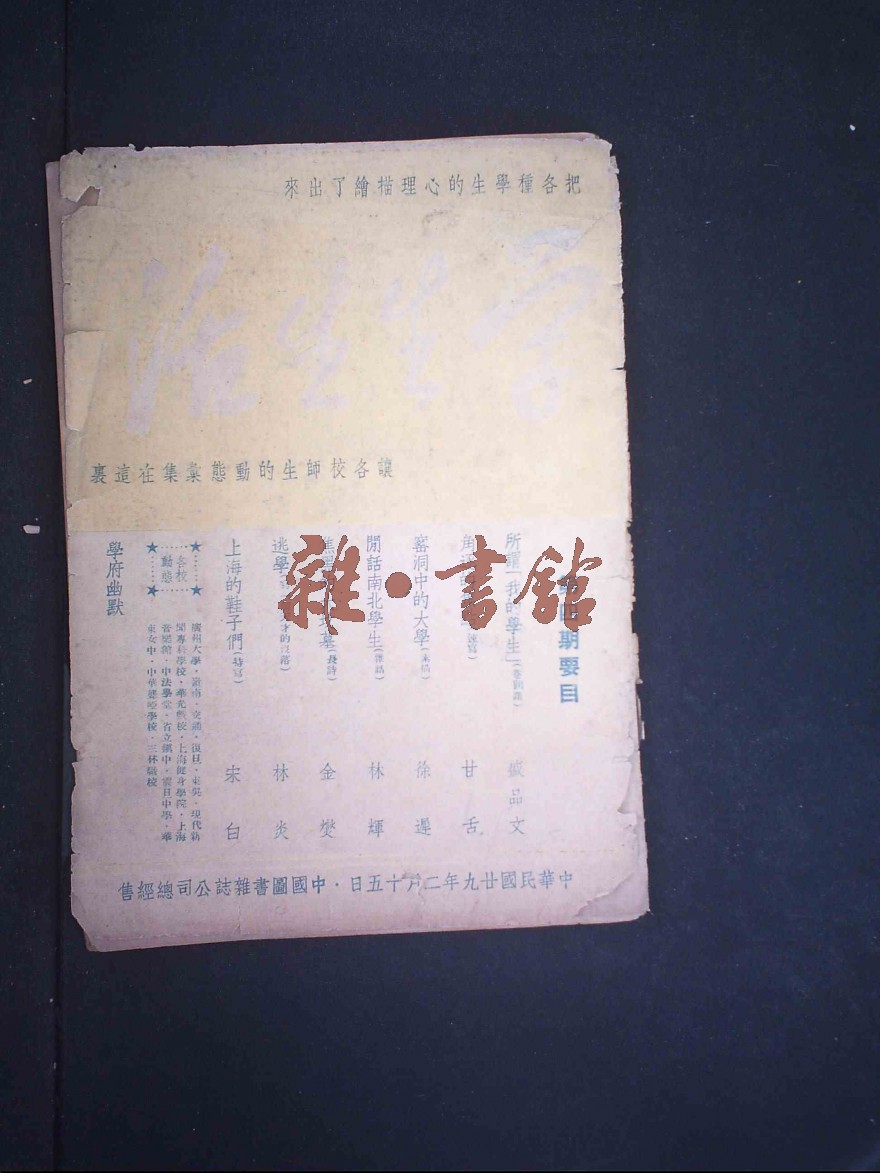 把各種學生的心理描繪了出來
学生生活
讓各校師生的動態彙集在這裏
第四期要目
所謂「我的學生」 文
甘舌
窰洞中的大學 徐遲
閒話南北學生(雜話) 林輝
墓(長詩) 金燮
逃學 林炎
上海的鞋子們(特寫) 宋白
★……★
各校
動態
★……★
廣州大學·嶺南·交通·復旦·東吳·現代新
聞專科學校·華光戲校·上海健身學院·上海
音樂館·中法學堂·省立揚中·震旦中學·華
東女中·中華聾啞學校·三林職校
學府幽默
中華民國廿九年二月十五日·中國圖書雜誌公司總經售
雜·書館